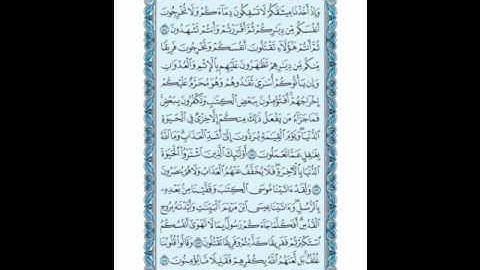 وَإِذْ أَخَذْنَا مِيثَٰقَكُمْ لَا تَسْفِكُونَ دِمَآءَكُمْ وَلَا تُخْرِجُونَ
أَنفُسَكُم مِّن دِيَٰرِكُمْ ثُمَّ أَقْرَرْتُمْ وَأَنتُمْ تَشْهَدُونَ ۝٨٤
ثُمَّ أَنتُمْ هَٰٓؤُلَآءِ تَقْتُلُونَ أَنفُسَكُمْ وَتُخْرِجُونَ فَرِيقًا
مِّنكُم مِّن دِيَٰرِهِمْ تَظَٰهَرُونَ عَلَيْهِم بِٱلْإِثْمِ وَٱلْعُدْوَٰنِ
وَإِن يَأْتُوكُمْ أُسَٰرَىٰ تُفَٰدُوهُمْ وَهُوَ مُحَرَّمٌ عَلَيْكُمْ
إِخْرَاجُهُمْ ۚ أَفَتُؤْمِنُونَ بِبَعْضِ ٱلْكِتَٰبِ وَتَكْفُرُونَ بِبَعْضٍ ۚ
فَمَا جَزَآءُ مَن يَفْعَلُ ذَٰلِكَ مِنكُمْ إِلَّا خِزْىٌ فِى ٱلْحَيَوٰةِ
ٱلدُّنْيَا ۖ وَيَوْمَ ٱلْقِيَٰمَةِ يُرَدُّونَ إِلَىٰٓ أَشَدِّ ٱلْعَذَابِ ۗ وَمَا ٱللَّهُ
بِغَٰفِلٍ عَمَّا تَعْمَلُونَ ۝٨٥ أُو۟لَٰٓئِكَ ٱلَّذِينَ ٱشْتَرَوُا۟ ٱلْحَيَوٰةَ
ٱلدُّنْيَا بِٱلْءَاخِرَةِ ۖ فَلَا يُخَفَّفُ عَنْهُمُ ٱلْعَذَابُ وَلَا هُمْ يُنصَرُونَ
۝٨٦ وَلَقَدْ ءَاتَيْنَا مُوسَى ٱلْكِتَٰبَ وَقَفَّيْنَا مِنۢ بَعْدِهِۦ
بِٱلرُّسُلِ ۖ وَءَاتَيْنَا عِيسَى ٱبْنَ مَرْيَمَ ٱلْبَيِّنَٰتِ وَأَيَّدْنَٰهُ بِرُوحِ
ٱلْقُدُسِ ۗ أَفَكُلَّمَا جَآءَكُمْ رَسُولٌۢ بِمَا لَا تَهْوَىٰٓ أَنفُسُكُمُ
ٱسْتَكْبَرْتُمْ فَفَرِيقًا كَذَّبْتُمْ وَفَرِيقًا تَقْتُلُونَ ۝٨٧ وَقَالُوا۟ قُلُوبُنَا
غُلْفٌۢ ۚ بَل لَّعَنَهُمُ ٱللَّهُ بِكُفْرِهِمْ فَقَلِيلًا مَّا يُؤْمِنُونَ ۝٨٨